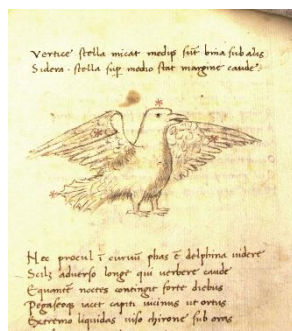 Vertice stella micat mediꝰ sūt bina sub alis
Sidera · stella suꝑ medio stat margine caude·
Nec procul ī curuū phas ē delphina videre
Scilꝫ aduerso longe qui verbere caude
Equante noctes contingit forte diebus
Pegaseoqꝫ iacet capiti uicinus ut ortus
Extremo liquidas uiso chirone sub oras